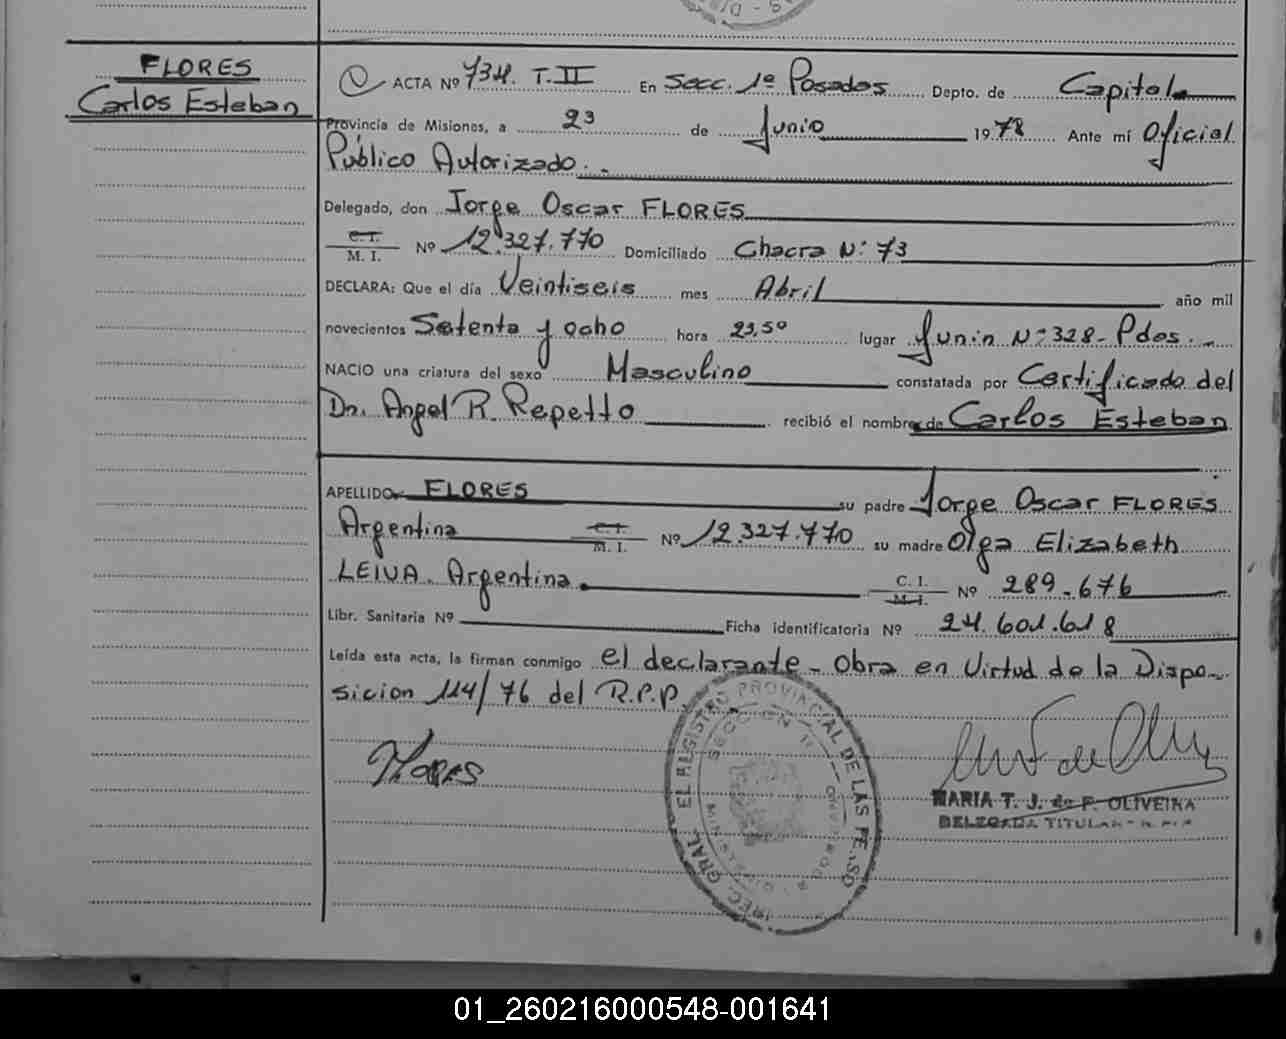 FLORES
Carlos Esteban
ACTA Nº 734. T. II En Secc. 1º Posadas Depto. de Capital
Provincia de Misiones, a 23 de Junio 1978 Ante mí Oficial
Público Autorizado.
Delegado, don Jorge Oscar FLORES
C. I.
M. I. Nº 12.327.770 Domiciliado Chacra N: 73
DECLARA: Que el día Veintiseis mes Abril año mil
novecientos Setenta y ocho hora 23,50 lugar Junin N: 328- Pdas.
NACIO una criatura del sexo Masculino constatada por Certificado del
Dr. Angel R. Repetto recibió el nombre de Carlos Esteban
APELLIDO FLORES su padre Jorge Oscar FLORES
Argentina C. I. M. I. Nº 12.327.770 su madre Olga Elizabeth
LEIVA. Argentina. C. I. M. I. Nº 289-676
Libr. Sanitaria Nº Ficha identificatoria Nº 24.601.618
Leída esta acta, la firman conmigo el declarante - Obra en Virtud de la Dispo-
sicion 114/76 del R.P.P.
Flores
GRAL. EL REGISTRO PROVINCIAL DE LAS
SECCION
MARIA T. J. de F. OLIVEIRA
DELEGADA TITULAR
01_260216000548-001641